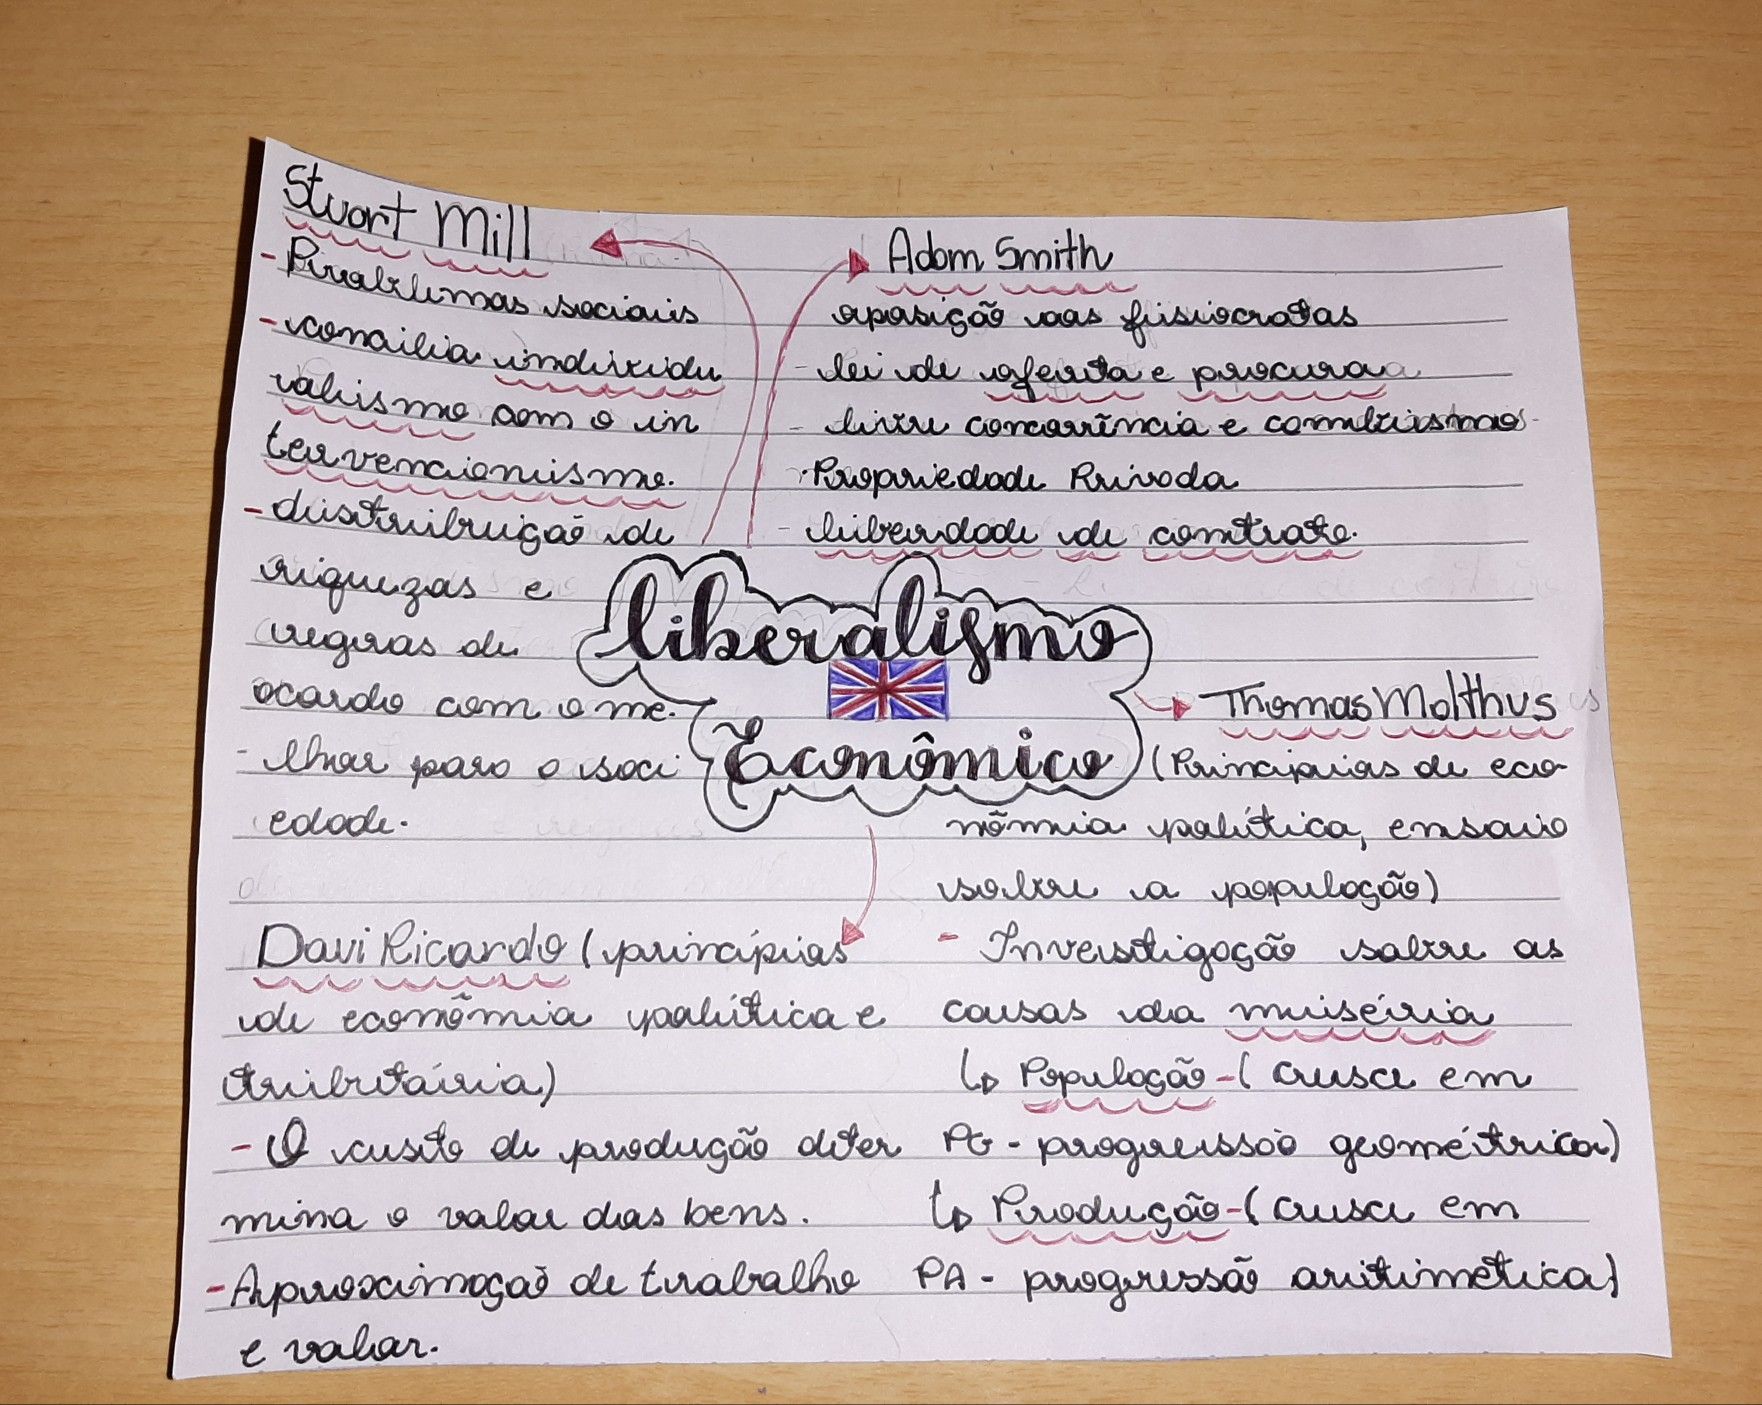 Stuart Mill
- Problemas sociais
- concilia individu
alismo com o in
tervencionismo.
- distribuição de
riquezas e
regras de
acordo com o me-
- lhor para a soci
edade.
Adam Smith
oposição aos fisiocratas
- lei de oferta e procura
- livre concorrência e cambismo
- Propriedade Privada
- liberdade de contrato.
liberalismo
Econômico
Thomas Malthus
(Princípios de eco-
nômia política, ensaio
sobre a população)
- Investigação sobre as
causas da miséria
↳ População - (cresce em
PG - progressão geométrica)
↳ Produção - (cresce em
PA - progressão aritimética)
Davi Ricardo (princípios
de econômia política e
tributária)
- O custo de produção deter
mina o valor dos bens.
- Aproximação de trabalho
e valor.